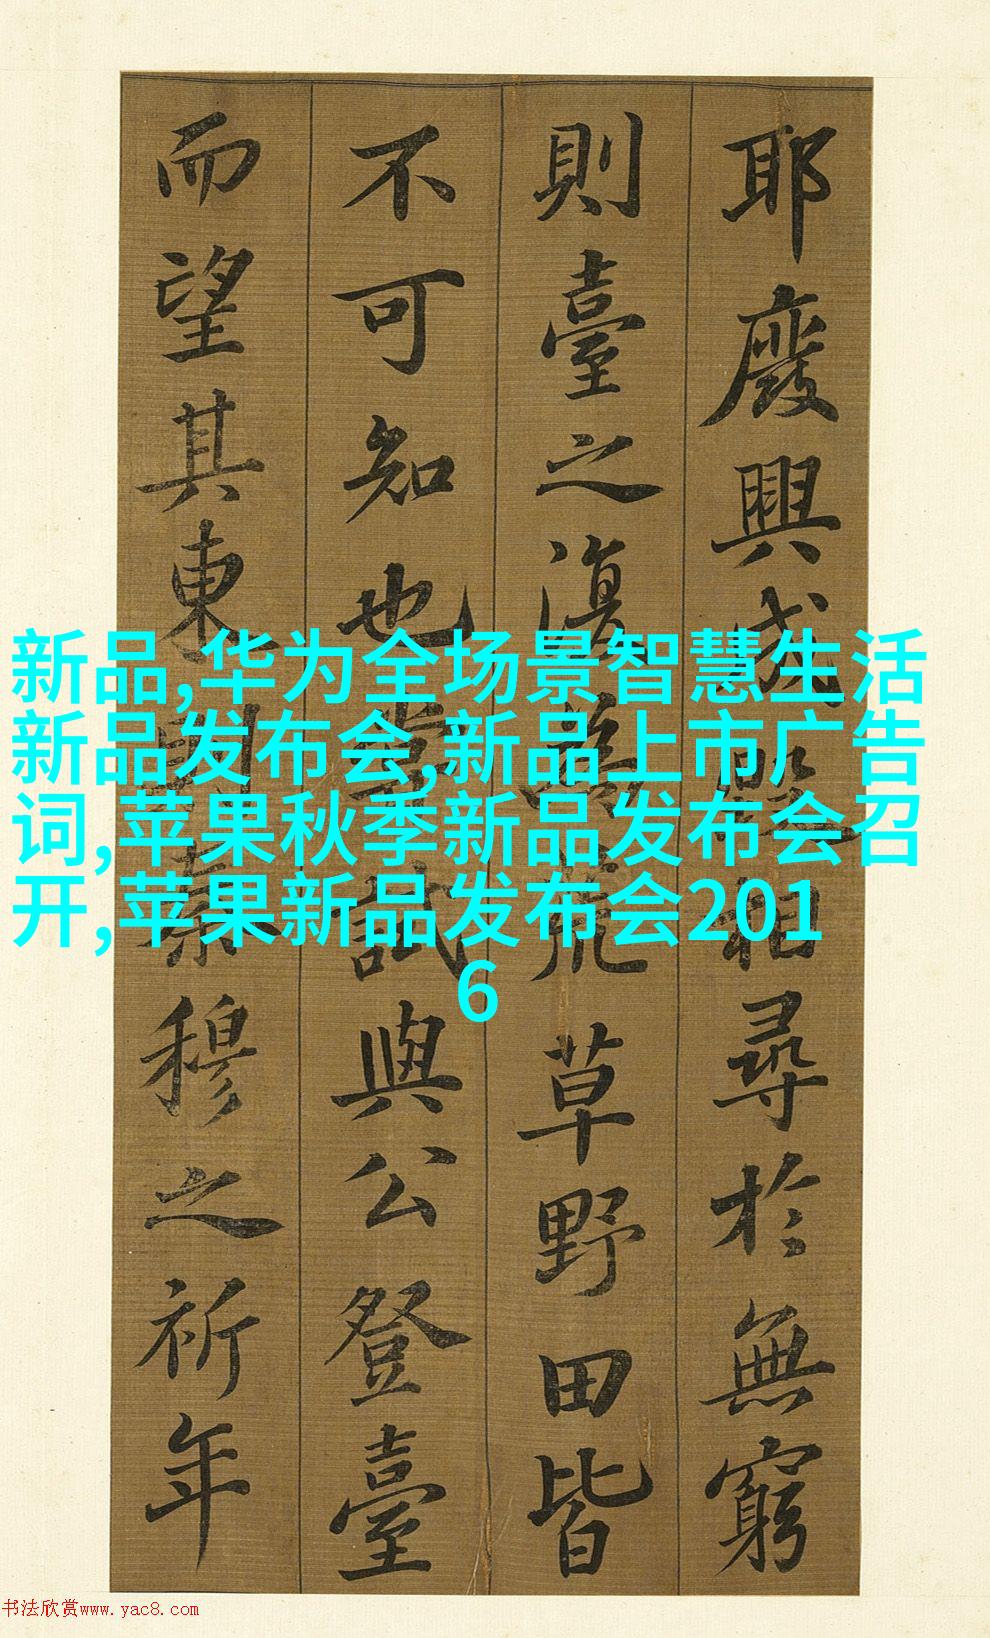 耶廢興成毀相尋於無窮
則臺之復為荒草野田皆
不可知也嘗試與公登臺
而望其東則秦穆之祈年
新品,华为全场景智慧生活
新品发布会,新品上市广告
词,苹果秋季新品发布会召
开,苹果新品发布会201
6
书法欣赏www.yac8.com